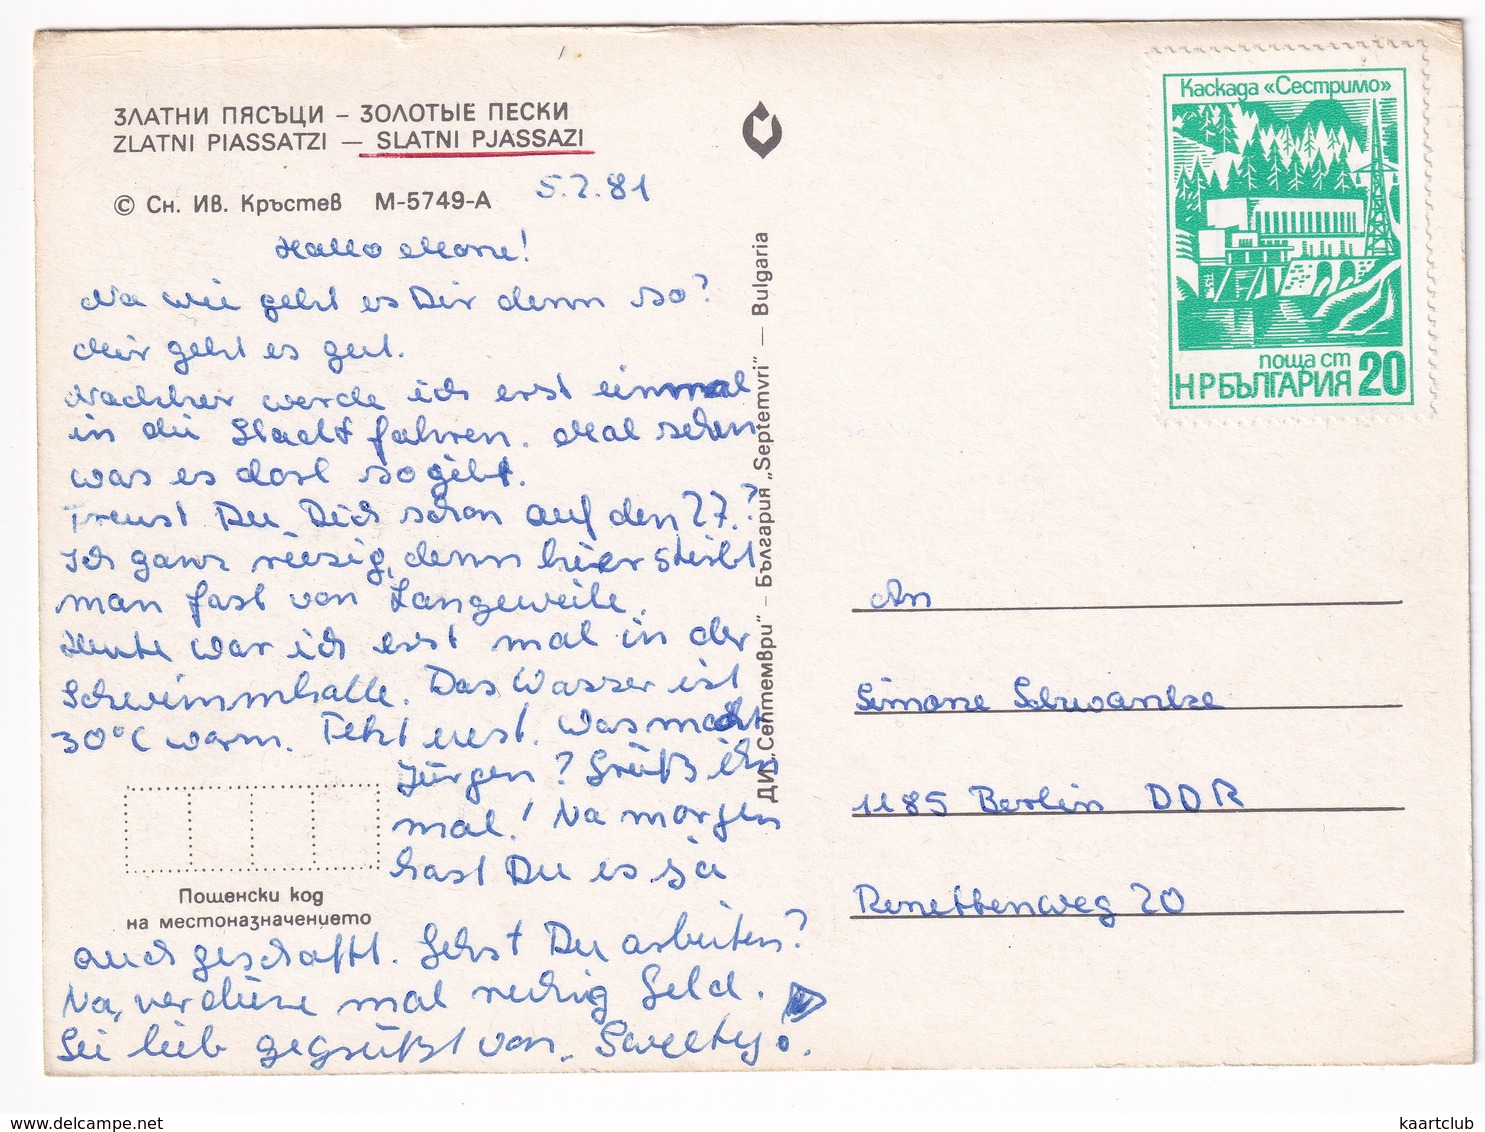 ЗЛАТНИ ПЯСЪЦИ – ЗОЛОТЫЕ ПЕСКИ
ZLATNI PIASSATZI — SLATNI PJASSAZI
© Сн. Ив. Кръстев М-5749-А
5.2.81
Hallo Mone!
Na wie geht es Dir denn so?
Mir geht es gut.
Nachher werde ich erst einmal
in die Stadt fahren. Mal sehen
was es dort so gibt.
Freust Du Dich schon auf den 27.?
Ich ganz riesig, denn hier stirbt
man fast von Langeweile.
Heute war ich erst mal in der
Schwimmhalle. Das Wasser ist
30°C warm. Fetzt urst. Was macht
Jürgen? Grüß ihn
mal! Na morgen
hast Du es ja
auch geschafft. Gehst Du arbeiten?
Na, verdiene mal richtig Geld.
Sei lieb gegrüßt von
Пощенски код
на местоназначението
ДИ „Септември" — България „Septemvri" — Bulgaria
Каскада «Сестримо»
поща ст
НРБЪЛГАРИЯ 20
An
Simone Schwantke
1185 Berlin DDR
Renettenweg 20
www.delcampe.net
kaartclub